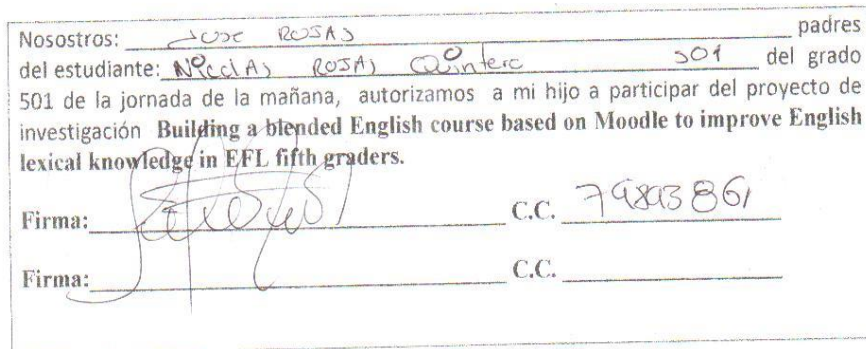 Nosostros: Jose ROJAS padres
del estudiante: NicolAs ROJAS Quintero 501 del grado
501 de la jornada de la mañana, autorizamos a mi hijo a participar del proyecto de
investigación Building a blended English course based on Moodle to improve English
lexical knowledge in EFL fifth graders.
Firma: C.C.
Firma: C.C.